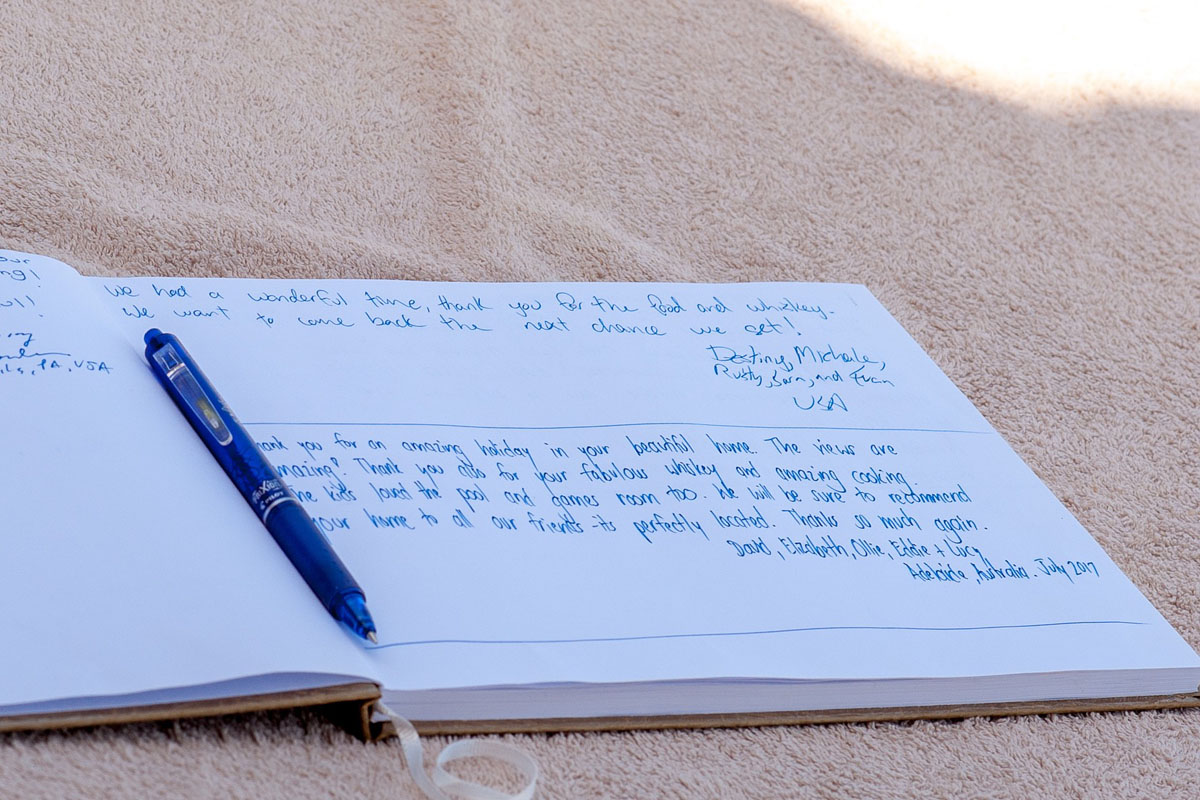 our
ng!
ul!
PA, USA
We had a wonderful time, thank you for the food and whiskey.
We want to come back the next chance we get!
Destiny, Michele,
Rusty, Sara, and Evan
USA
hank you for an amazing holiday in your beautiful home. The views are
mazing! Thank you also for your fabulous whiskey and amazing cooking.
he kids loved the pool and games room too. We will be sure to recommend
your home to all our friends its perfectly located. Thanks so much again.
David, Elizabeth, Ollie, Eddie + Lucy
Adelaide, Australia. July 2017